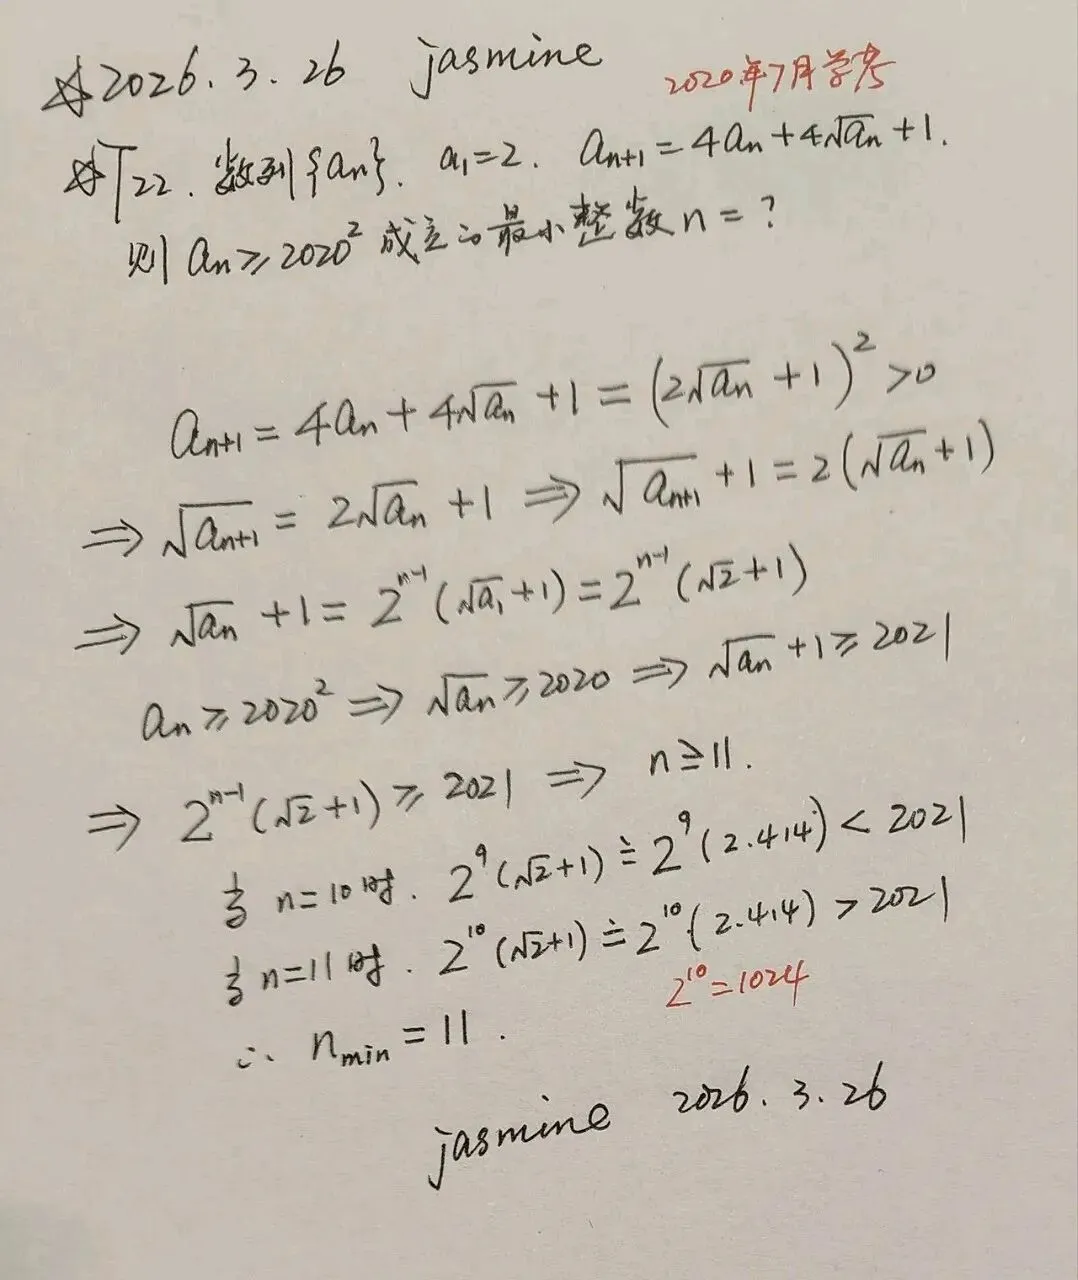 ☆2026.3.26 jasmine
2020年7月学考
☆T22. 数列{aₙ}. a₁=2. aₙ₊₁=4aₙ+4√aₙ+1.
则 aₙ≥2020² 成立的最小整数 n=?
aₙ₊₁=4aₙ+4√aₙ+1=(2√aₙ+1)²>0
⇒√aₙ₊₁=2√aₙ+1⇒√aₙ₊₁+1=2(√aₙ+1)
⇒√aₙ+1=2ⁿ⁻¹(√a₁+1)=2ⁿ⁻¹(√2+1)
aₙ≥2020²⇒√aₙ≥2020⇒√aₙ+1≥2021
⇒2ⁿ⁻¹(√2+1)≥2021⇒n≥11.
当 n=10时. 2⁹(√2+1)≐2⁹(2.414)<2021
当 n=11时. 2¹⁰(√2+1)≐2¹⁰(2.414)>2021
2¹⁰=1024
∴ nmin=11.
jasmine 2026.3.26